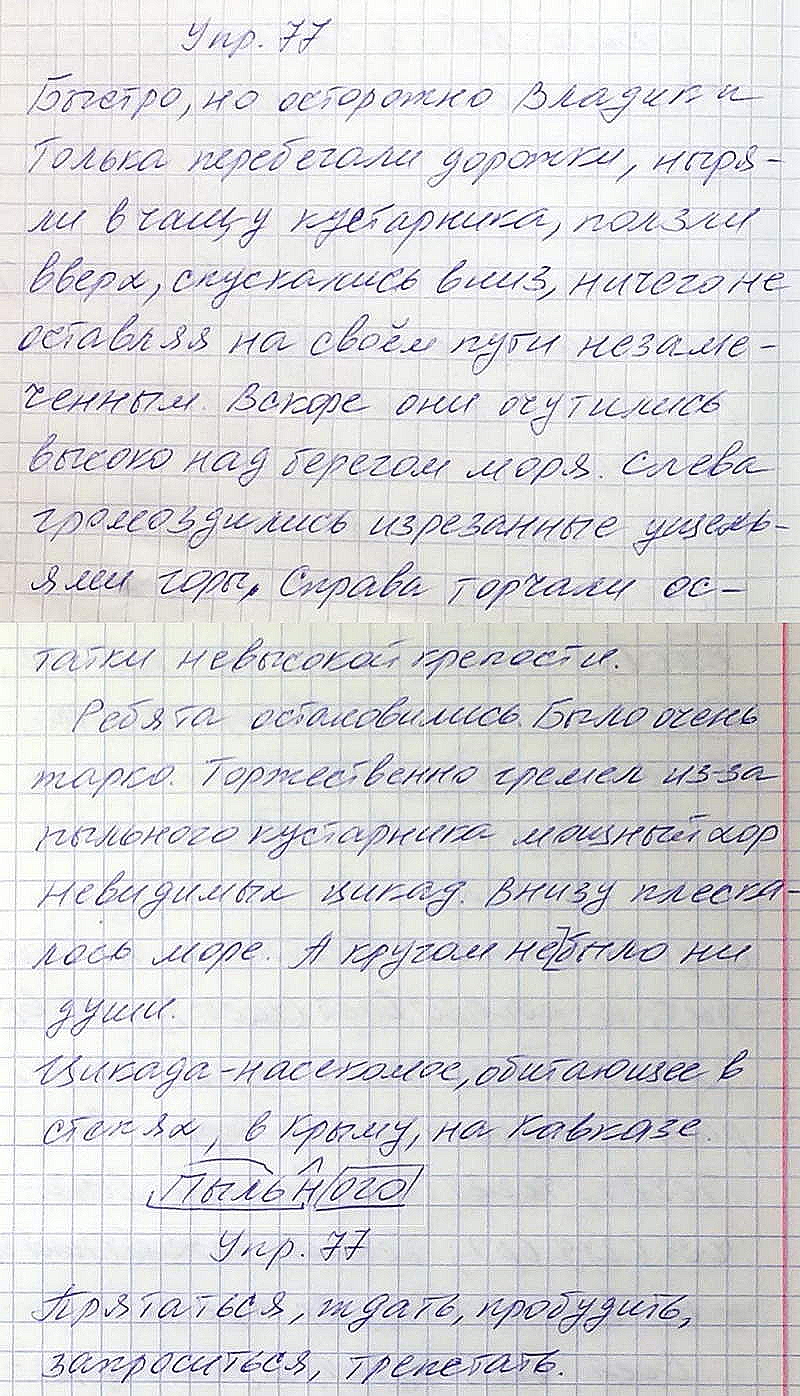 Упр. 77
Быстро, но осторожно Владик и
Толька перебегали дорожки, ныря-
ли в чащу кустарника, ползли
вверх, спускались вниз, ничего не
оставляя на своём пути незаме-
ченным. Вскоре они очутились
высоко над берегом моря. Слева
громоздились изрезанные ущель-
ями горы. Справа торчали ос-
татки невысокой крепости.
Ребята остановились. Было очень
жарко. Торжественно гремел из-за
пыльного кустарника мощный хор
невидимых цикад. Внизу плеска-
лось море. А кругом не было ни
души.
Цикада-насекомое, обитающее в
степях, в Крыму, на Кавказе.
Пыльного
Упр. 77
Прятаться, ждать, пробудить,
запроситься, трепетать.